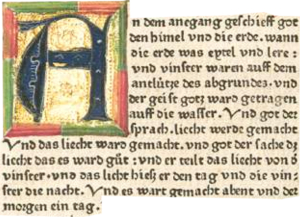 An dem anegang geschieff got
den himel vnd die erde. wann
die erde was eytel vnd lere:
vnd vinster waren auff dem
antlütze des abgrundes. vnd
der geist gotz ward getragen
auff die wasser. Vnd got der
sprach. liecht werde gemacht
Vnd das liecht ward gemacht. vnd got der sache dz
liecht das es ward güt: vnd er teilt das liecht von d
vinster. vnd das licht hieß er den tag vnd die vin
ster die nacht. Vnd es wart gemacht abent vnd der
morgen ein tag.